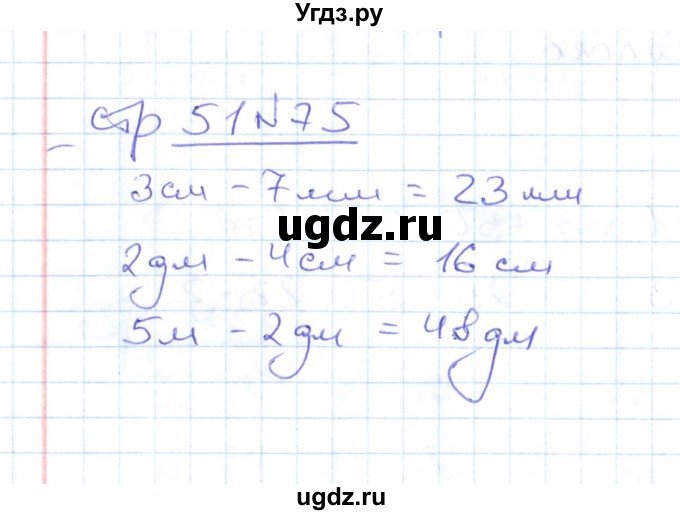 Угдз.ру
стр 51 N 75
3см - 7мм = 23 мм
ugdz.ru
2дм - 4см = 16 см
5м - 2дм = 48 дм
ugdz.ru